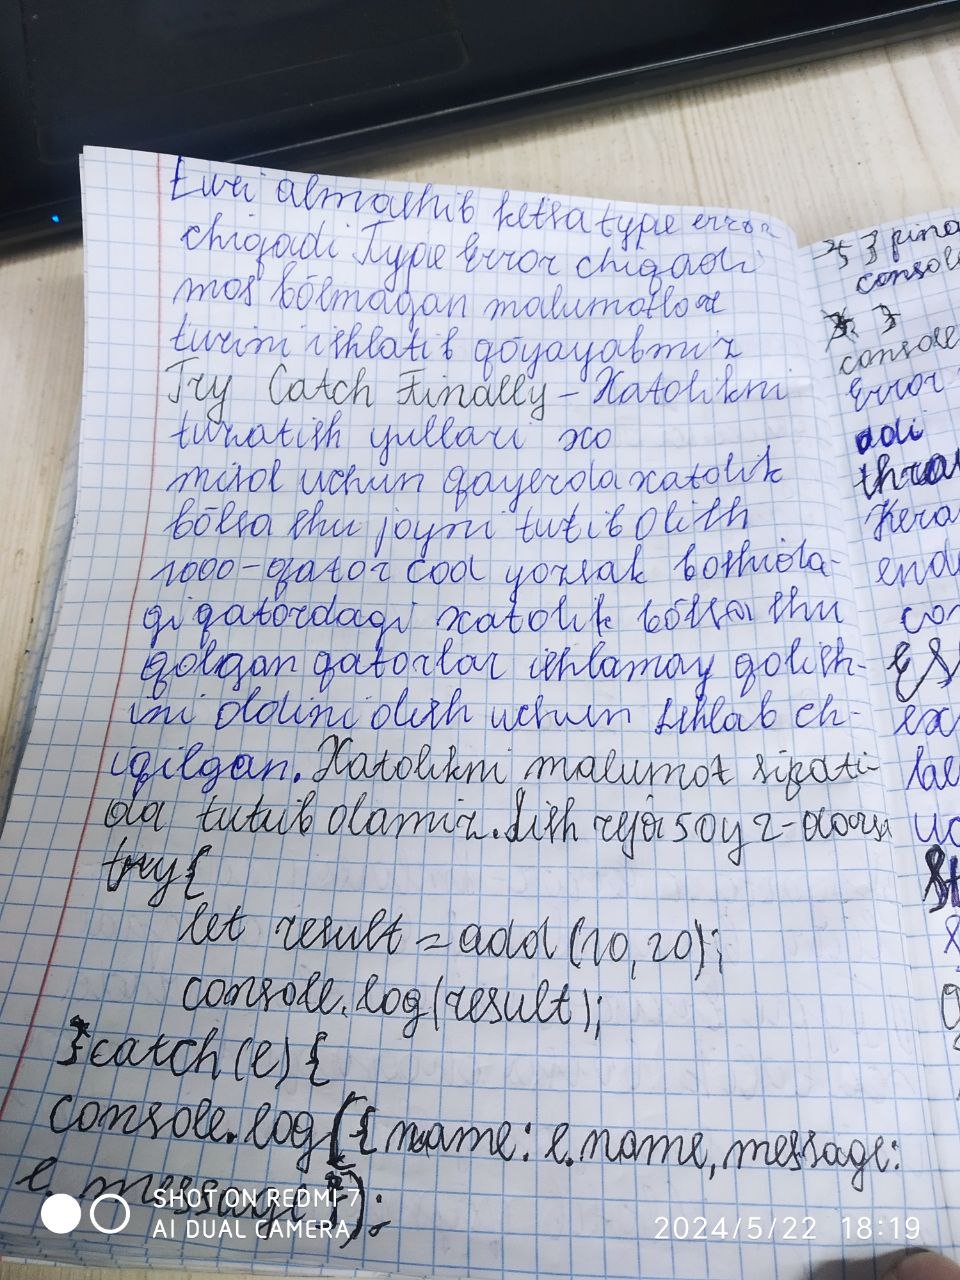 turi almashib ketsa type error
chiqadi Type Error chiqadi
mos bölmagan malumotlar
turini ishlatib qöyayabmiz
Try Catch Finally – Xatolikni
tuzatish yullari xo
misol uchun qayerda xatolik
bölsa shu joyni tutib olish
1000-qator cod yozsak boshida-
gi qatordagi xatolik bölsa shu
qolgan qatorlar ishlamay qolish-
ini oldini olish uchun ishlab ch-
iqilgan. Xatolikni malumot sifati-
da tutub olamiz.
try{
let result = add(20,20);
console.log(result);
}catch(e){
console.log({name: e.name, message:
e.message});
} fina
consol
}
console
Error
adi
Kera
end
con
ES
ex
SHOT ON REDMI 7
AI DUAL CAMERA
2024/5/22 18:19